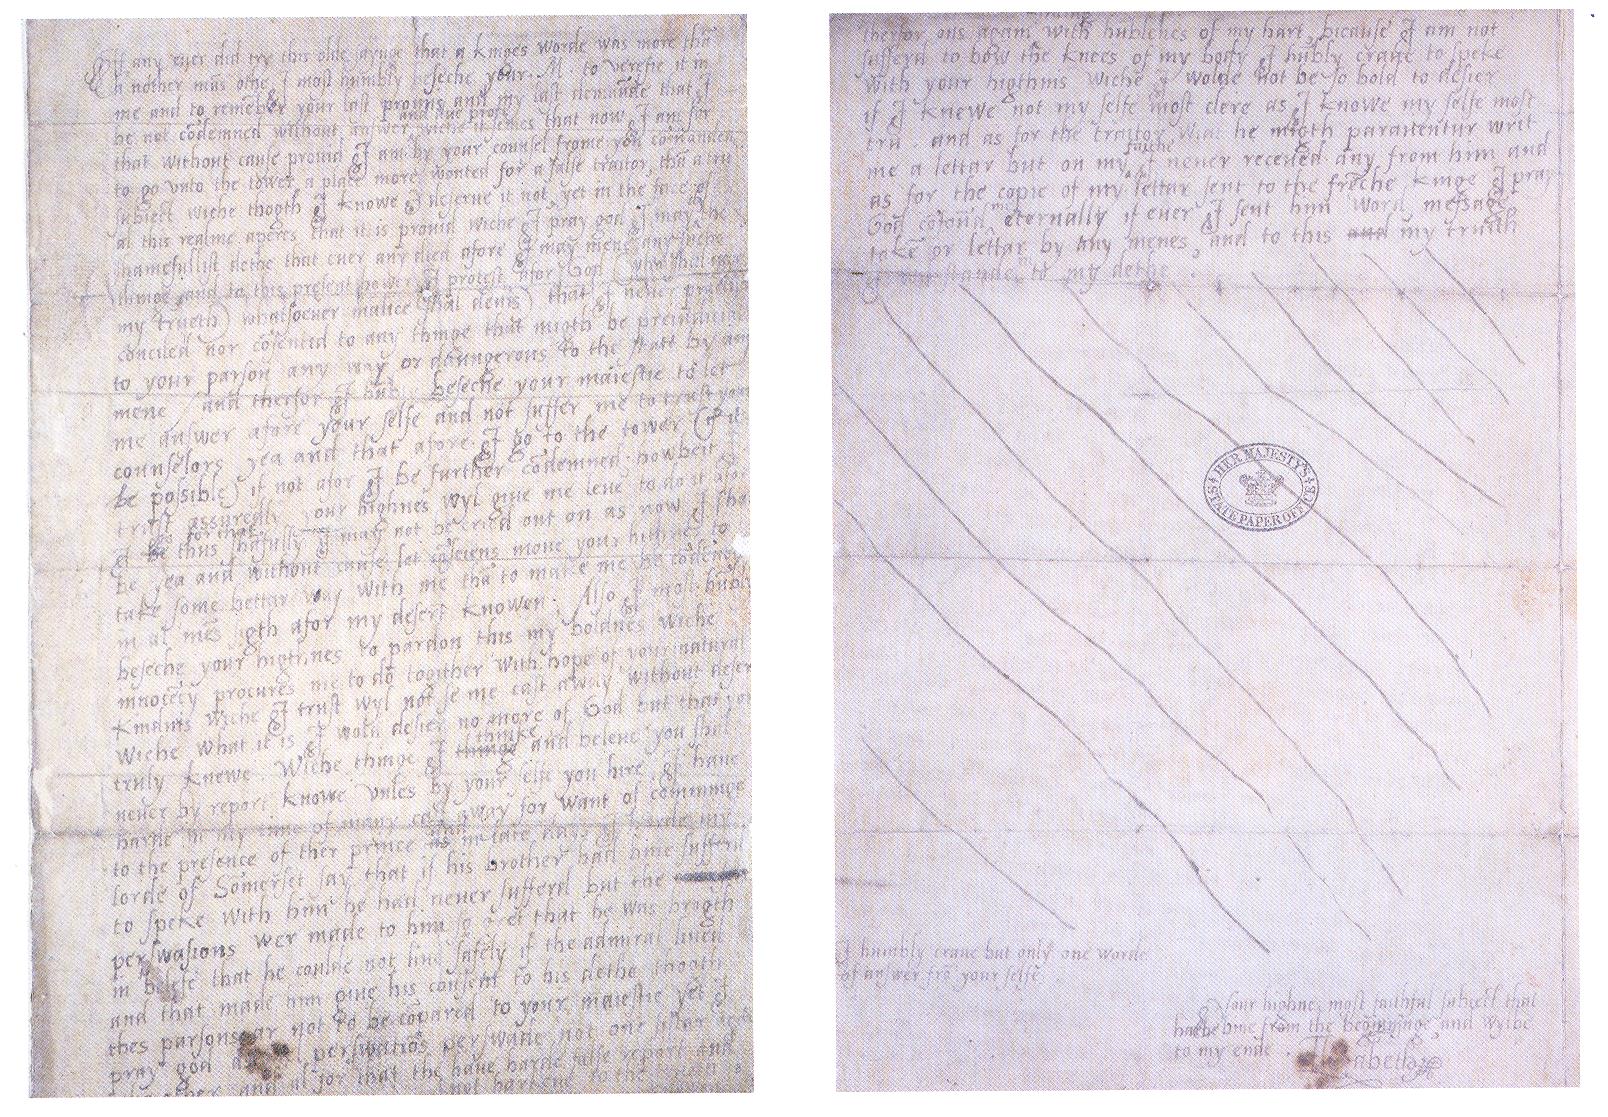 If any euer did try this olde sayinge that a kinges worde was more tha
a nother mas othe I most humbly beseche your M. to verefie it in
me and to remeber your last promis and my last demaunde that I
be not codemned without answer and due profe wiche it semes that now I am for
that without cause prouid I am by your counsel frome you comanded
to go vnto the tower a place more wonted for a false traitor, tha a tru
subiect wiche thogth I knowe I deserue it not, yet in the face of
al this realme aperes that it is prouid wiche I pray god I may dy the
shamefullist dethe that euer any died afore I may mene any suche
thinge and to this present hower I protest afor God (who shal iuge
my trueth) whatsoeuer malice shal deuis) that I neuer practisd
conciled nor cosentid to any thinge that migth be preiudicial
to your parson any way or daungerous to the stat by any
mene and therfor I hubly beseche your maiestie to let
me answer afore your selfe and not suffer me to trust your
counselors yea and that afore I go to the tower (if it
be possible) if not afor I be further codemned howbeit I
trust assuredly your highnes wyl giue me leue to do it afor
I go for that thus shafully I may not be cried out on as now I shal
be yea and without cause let cosciens moue your highnes to
take some bettar way with me tha to make me be codemned
in al mes sigth afor my desert knowen. Also I most hubly
beseche your higthnes to pardon this my boldnes wiche
innocecy procures me to do togither with hope of your natural
kindnis wiche I trust wyl not se me cast away without desert
wiche what it is I wold desier no more of God but that you
truly knewe. Wiche thinge I thinge thinke and beleue you shal
neuer by report knowe vnles by your selfe you hire. I haue
harde in my time of many cast away for want of comminge
to the presence of ther prince as and in late days I harde my
lorde of Somerset say that if his brother had bine sufferd
to speke with him he had neuer sufferd but the
perswasions wer made to him so gret that he was brogth
in belefe that he coulde not liue safely if the admiral liued
and that made him giue his consent to his dethe thogth
thes parsons ar not to be copared to your maiestie yet I
pray god as perswatios perswade not one sistar again
and al for that the haue harde false report and
not harkene to the
therfor ons again with hublenes of my hart, bicause I am not
sufferd to bow the knees of my body I hubly craue to speke
with your higthnis wiche I wolde not be so bold to desier
if I knewe not my selfe most clere as I knowe my selfe most
tru. and as for the traitor Wiat he migth parauentur writ
me a lettar but on my faithe I neuer receued any from him and
as for the copie of my lettar sent to the freche kinge I pray
God cofoud me eternally if euer I sent him word, message
toke or lettar by any menes, and to this and my truith
I wil stande in to my dethe.
HER MAJESTY'S STATE PAPER OFFICE
I humbly craue but only one worde
of answer fro your selfe.
Your highnes most faithful subiect that
hathe bine from the beginninge and wylbe
to my ende. Elizabeth